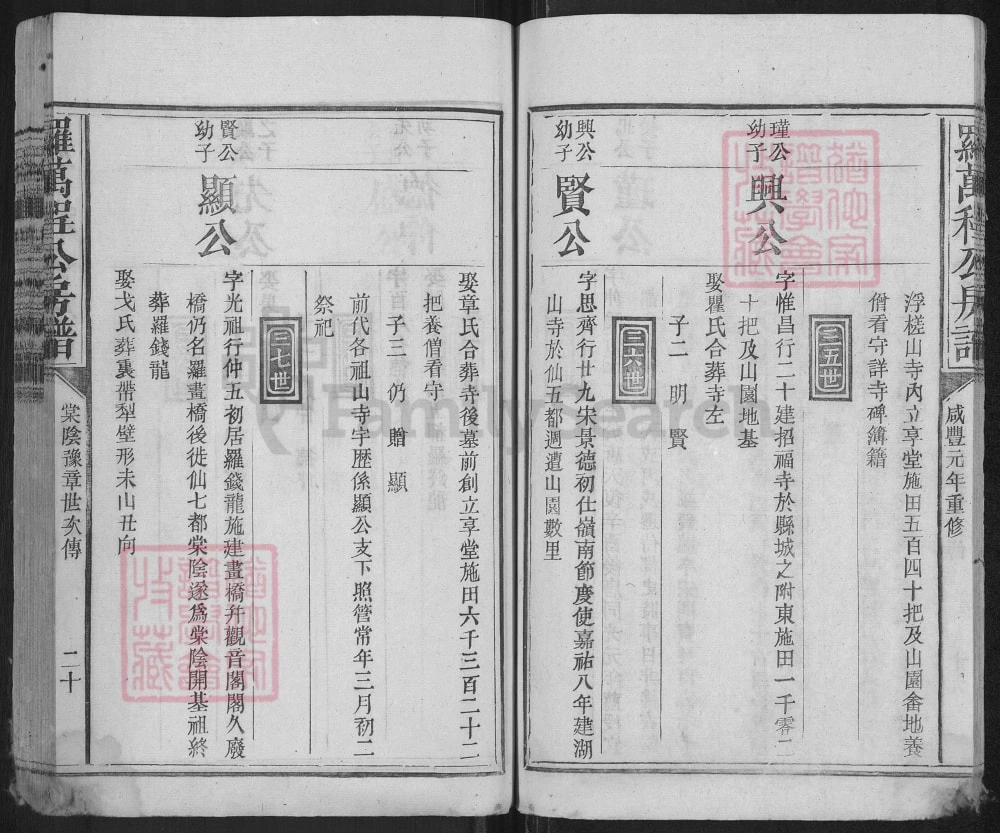 羅萬程公房譜
咸豐元年重修
浮槎山寺內立享堂施田五百四十把及山園畲地養
僧看守詳寺碑簿籍
三五世
瑾公
幼子
興公
字惟昌行二十建招福寺於縣城之附東施田一千零二
十把及山園地基
娶瞿氏合葬寺左
子二 明 賢
三六世
興公
幼子
賢公
字思齊行廿九宋景德初仕嶺南節度使嘉祐八年建湖
山寺於仙五都週遭山園數里
娶章氏合葬寺後墓前創立享堂施田六千三百二十二
把養僧看守
子三 仍 贈 顯
前代各祖山寺宇歷係顯公支下照管常年三月初二
祭祀
三七世
賢公
幼子
顯公
字光祖行仲五初居羅錢龍施建畫橋幷觀音閣閣久廢
橋仍名羅畫橋後徙仙七都棠陰遂爲棠陰開基祖終
葬羅錢龍
娶戈氏葬裏帶犁壁形未山丑向
羅萬程公房譜
棠陰豫章世次傳
二十
FamilySearch